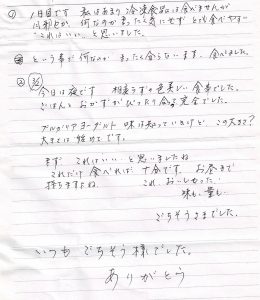 ① 1日目です 私はあまり冷凍食品は食べませんが
何なのか まったく気にせず とても食べやすい
これはいい…と思いました。
という事が何なのか まったく分らないまま 食べました
②
今日は夜です 相変らずの色美しい食事でした。
ごはんとおかずがぴったり合う量でした。
ブルガリアヨーグルト 味は知っていたけど、この大きさ?
大きさは初めてです。
まず これはいい…と思いましたね
これだけ食べれば 十分です お昼まで
持ちますよね。 これ おいしかった!
味も、量も、
ごちそうさまでした。
いつも ごちそう様でした。
ありがとう